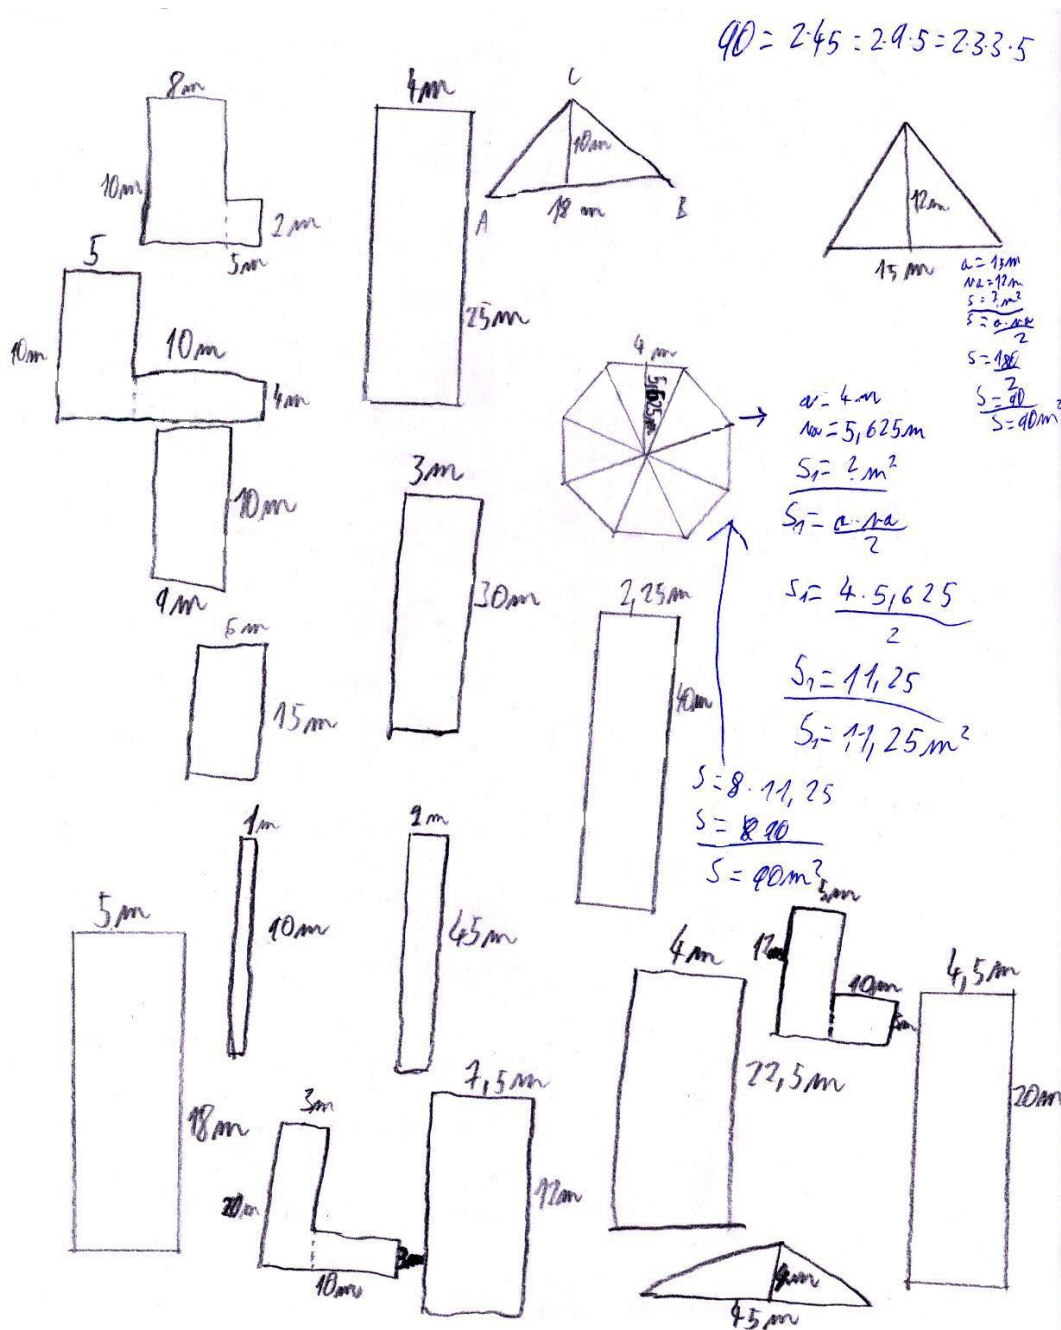 90 = 2·45 = 2·9·5 = 2·3·3·5
8m
10m
2m
5m
4m
25m
C
10m
A
18 m
B
12m
15m
a = 15m
va = 12m
S = ? m²
S = a·va
2
S = 180
2
S = 90
S = 90m²
5
10m
10m
4m
4 m
5,625m
a = 4m
va = 5,625m
S₁ = ? m²
S₁ = a·va
2
S₁ = 4·5,625
2
S₁ = 11,25
S₁ = 11,25m²
S = 8·11,25
S = 90
S = 90m²
10m
9m
3m
30m
6m
15m
2,25m
40m
1m
90m
2m
45m
5m
18m
3m
10m
7,5m
12m
4m
22,5m
5m
12m
10m
3m
4,5m
20m
45m